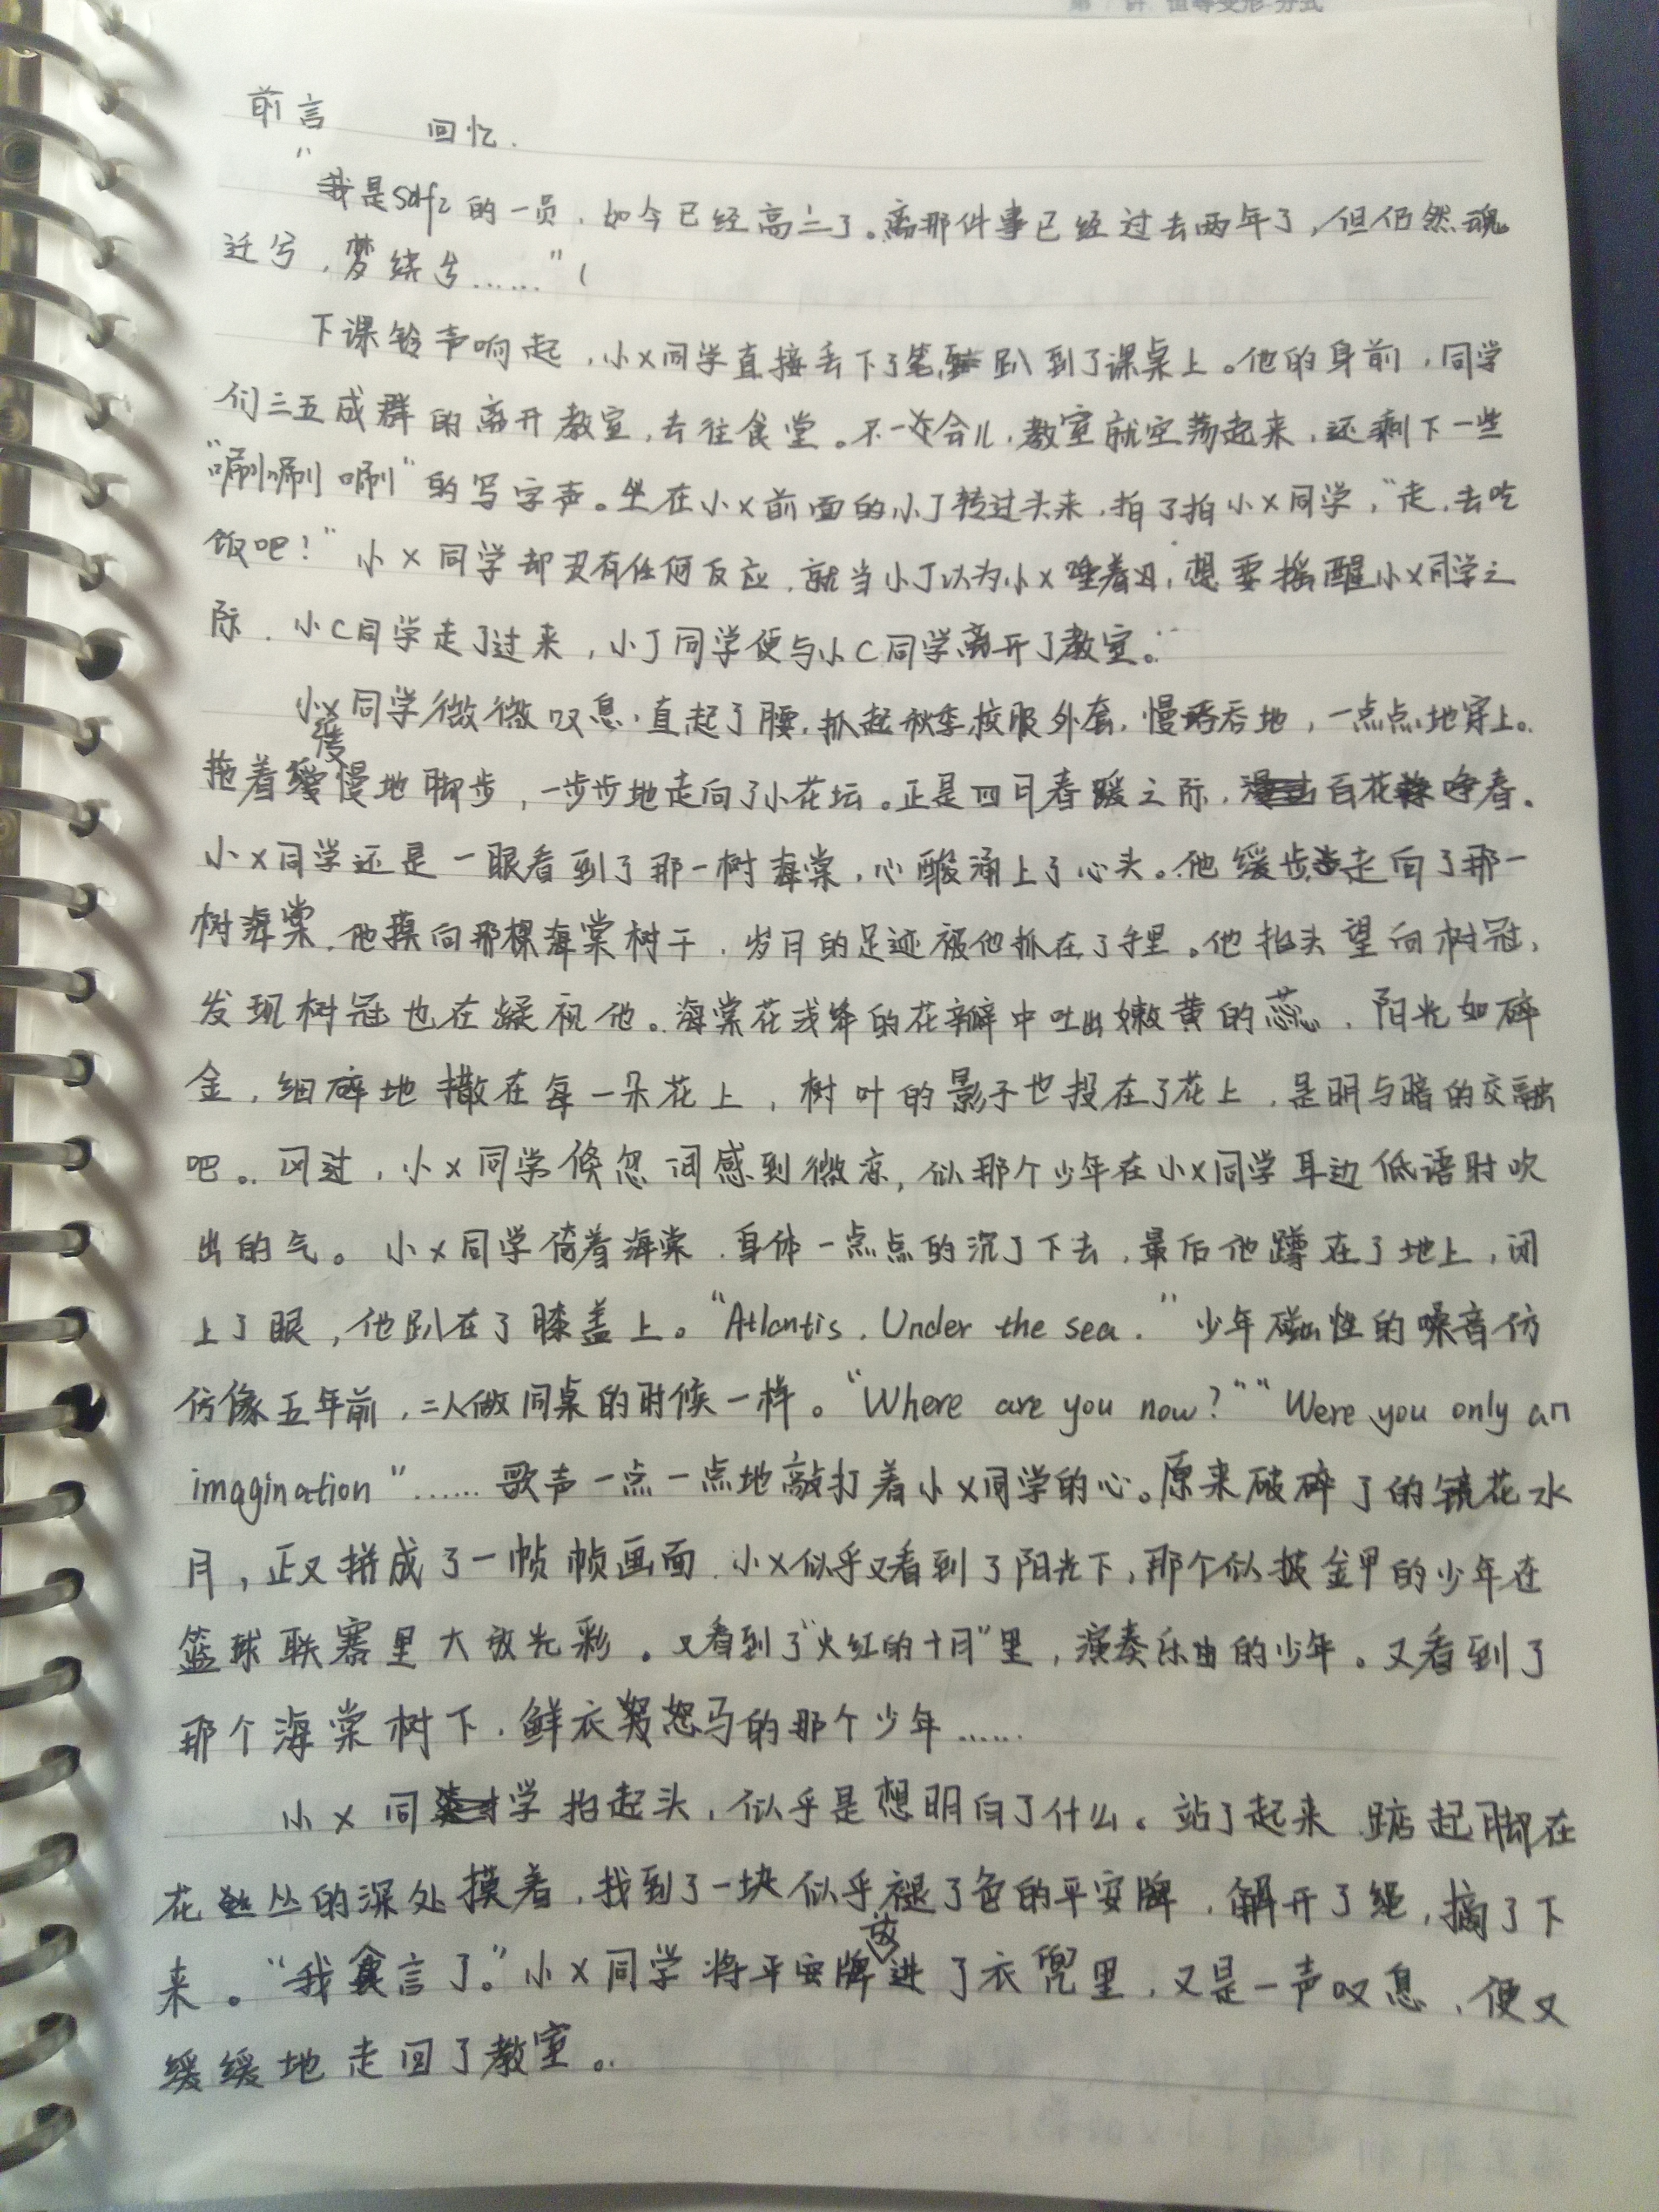 第 讲 恒等变形 分式
前言 回忆.
"我是sdfz的一员,如今已经高三了。离那件事已经过去两年了,但仍然魂
迁兮,梦绕兮……"
下课铃声响起,小X同学直接丢下了笔,趴到了课桌上。他的身前,同学
们三五成群的离开教室,去往食堂。不一会儿,教室就空荡起来,还剩下一些
"唰唰唰"的写字声。坐在小X前面的小J转过头来,拍了拍小X同学,"走,去吃
饭吧!"小X同学却没有任何反应,就当小J以为小X睡着了,想要摇醒小X同学之
际,小C同学走了过来,小J同学便与小C同学离开了教室。
小X同学微微叹息,直起了腰,抓起秋季校服外套,慢吞吞地,一点点地穿上。
拖着缓慢地脚步,一步步地走向了小花坛。正是四月春暖之际,百花争春。
小X同学还是一眼看到了那一树海棠,心酸涌上了心头。他缓步走向了那一
树海棠,他摸向那棵海棠树干,岁月的足迹被他抓在了手里。他抬头望向树冠,
发现树冠也在凝视他。海棠花浅绛的花瓣中吐出嫩黄的蕊,阳光如碎
金,细碎地撒在每一朵花上,树叶的影子也投在了花上,是明与暗的交融
吧。风过,小X同学倏忽间感到微凉,似那个少年在小X同学耳边低语时吹
出的气。小X同学倚着海棠,身体一点点的沉了下去,最后他蹲在了地上,闭
上了眼,他趴在了膝盖上。"Atlantis, Under the sea."少年磁性的嗓音仿
仿像五年前,二人做同桌的时候一样。"Where are you now?""Were you only an
imagination"……歌声一点一点地敲打着小X同学的心。原来破碎了的镜花水
月,正又拼成了一帧帧画面,小X似乎又看到了阳光下,那个似披金甲的少年在
篮球联赛里大放光彩。又看到了"火红的十月"里,演奏乐曲的少年。又看到了
那个海棠树下,鲜衣怒马的那个少年……
小X同学抬起头,似乎是想明白了什么。站了起来,踮起脚在
花丛的深处摸着,找到了一块似乎褪了色的平安牌,解开了绳,摘了下
来。"我食言了。"小X同学将平安牌放进了衣兜里,又是一声叹息,便又
缓缓地走回了教室。